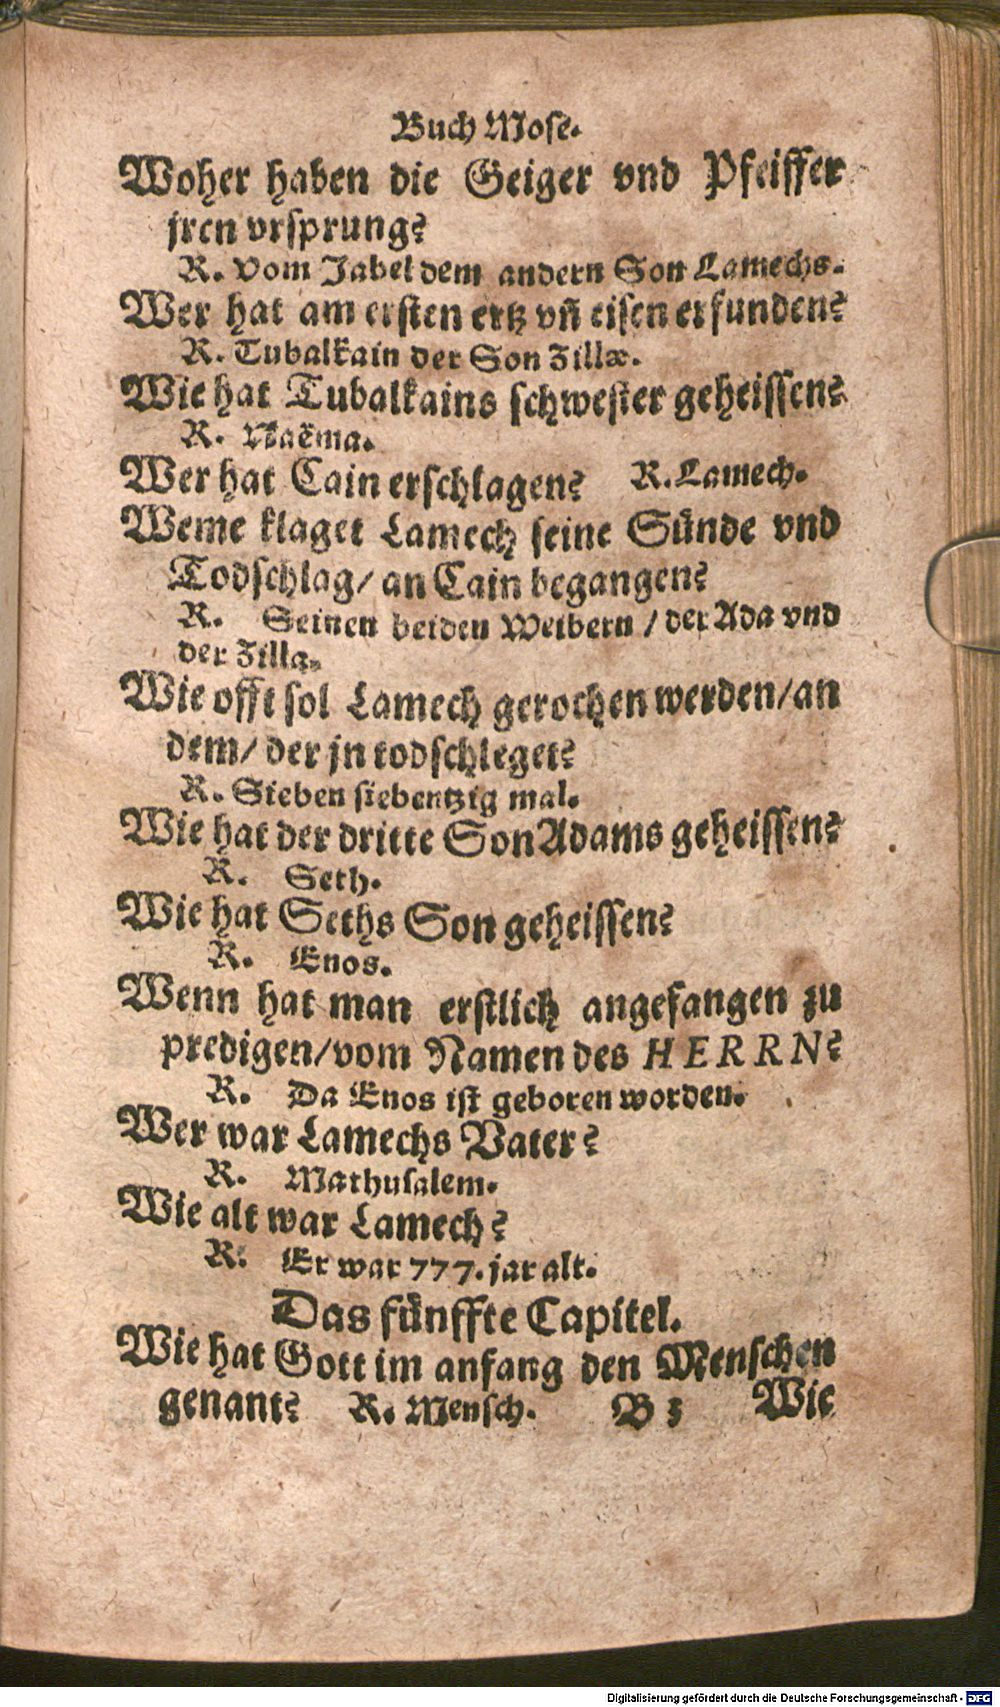 Buch Mose.
Woher haben die Geiger vnd Pfeiffer
jren vrsprung?
R. Vom Jabel dem andern Son Lamechs.
Wer hat am ersten ertz vñ eisen erfunden?
R. Tubalkain der Son Zillæ.
Wie hat Tubalkains schwester geheissen?
R. Naëma.
Wer hat Cain erschlagen? R. Lamech.
Weme klaget Lamech seine Sünde vnd
Todschlag / an Cain begangen?
R. Seinen beiden Weibern / der Ada vnd
der Zilla.
Wie offt sol Lamech gerochen werden / an
dem / der jn todschleget?
R. Sieben siebentzig mal.
Wie hat der dritte Son Adams geheissen?
R. Seth.
Wie hat Seths Son geheissen?
R. Enos.
Wenn hat man erstlich angefangen zu
predigen / vom Namen des HERRN?
R. Da Enos ist geboren worden.
Wer war Lamechs Vater?
R. Mathusalem.
Wie alt war Lamech?
R. Er war 777. jar alt.
Das fünffte Capitel.
Wie hat Gott im anfang den Menschen
genant? R. Mensch. B 3 Wie
Digitalisierung gefördert durch die Deutsche Forschungsgemeinschaft - DFG